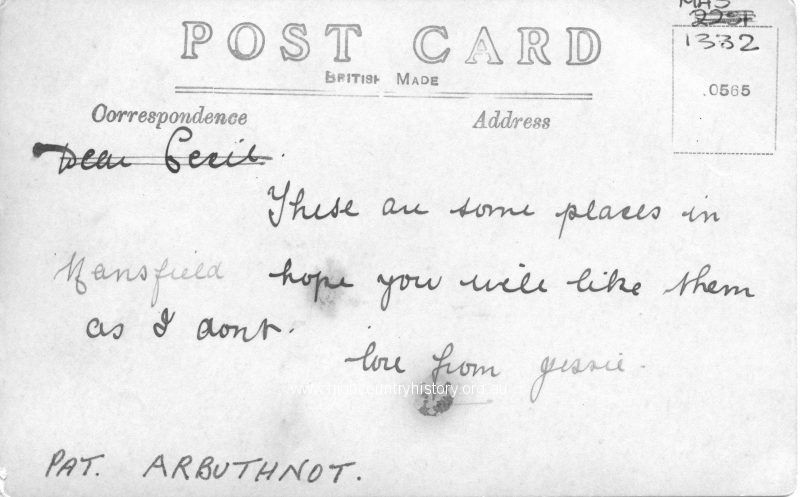 MHS
2251
1332
POST CARD
BRITISH MADE
.0565
Correspondence
Address
Dear Cecil.
These are some places in
Mansfield hope you will like them
as I dont.
love from Jessie.
www.highcountryhistory.org.au
PAT. ARBUTHNOT.